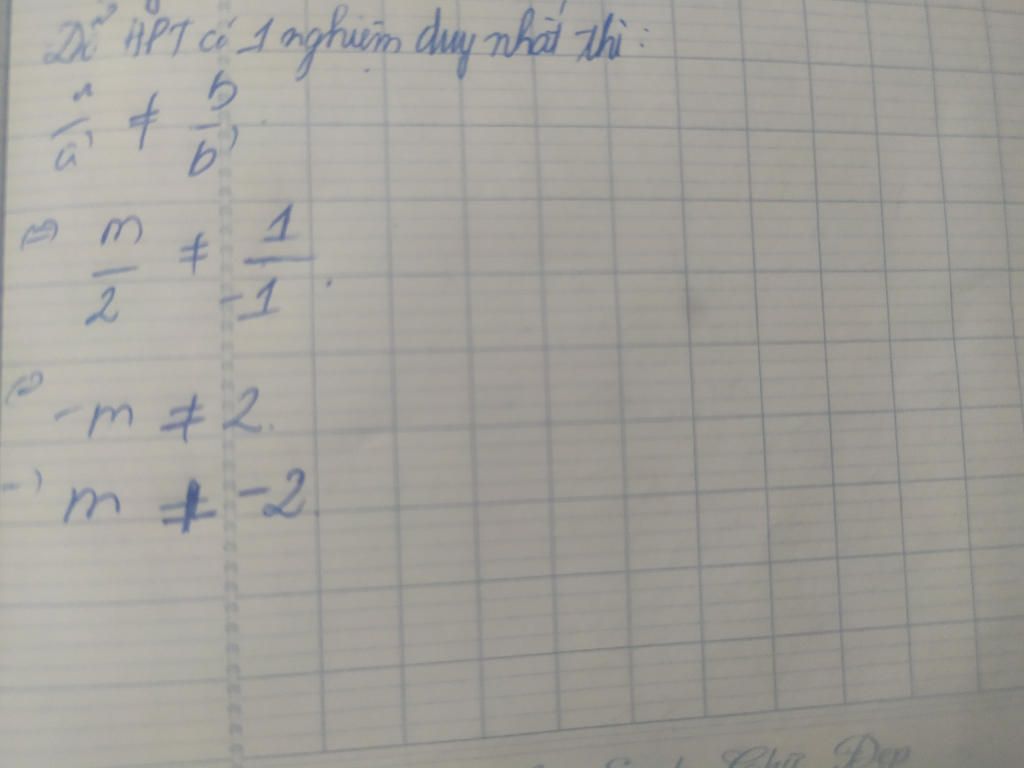 Để HPT có 1 nghiệm duy nhất thì:
a/a' ≠ b/b'
(=) m/2 ≠ 1/-1
(=) -m ≠ 2.
=) m ≠ -2
Chữ Đẹp